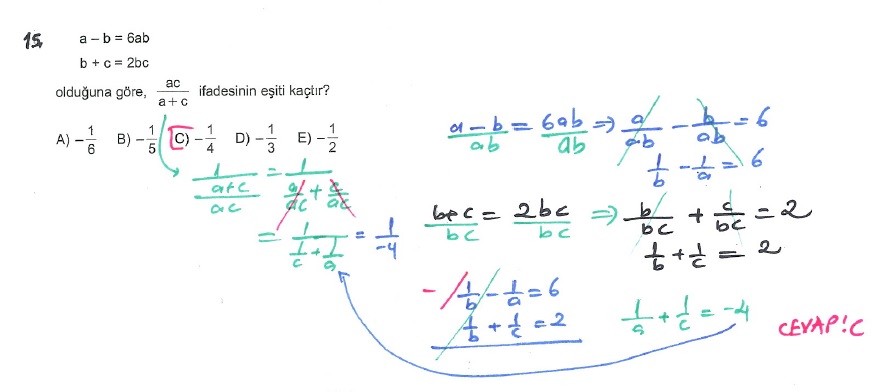 15.
a – b = 6ab
b + c = 2bc
olduğuna göre, ac/(a+c) ifadesinin eşiti kaçtır?
A) –1/6 B) –1/5 C) –1/4 D) –1/3 E) –1/2
1/((a+c)/ac) = 1/(a/ac + c/ac)
= 1/(1/c + 1/a) = 1/-4
(a – b)/ab = 6ab/ab ⇒ a/ab – b/ab = 6
1/b – 1/a = 6
(b+c)/bc = 2bc/bc ⇒ b/bc + c/bc = 2
1/b + 1/c = 2
–/ 1/b – 1/a = 6
1/b + 1/c = 2
1/a + 1/c = –4
CEVAP: C